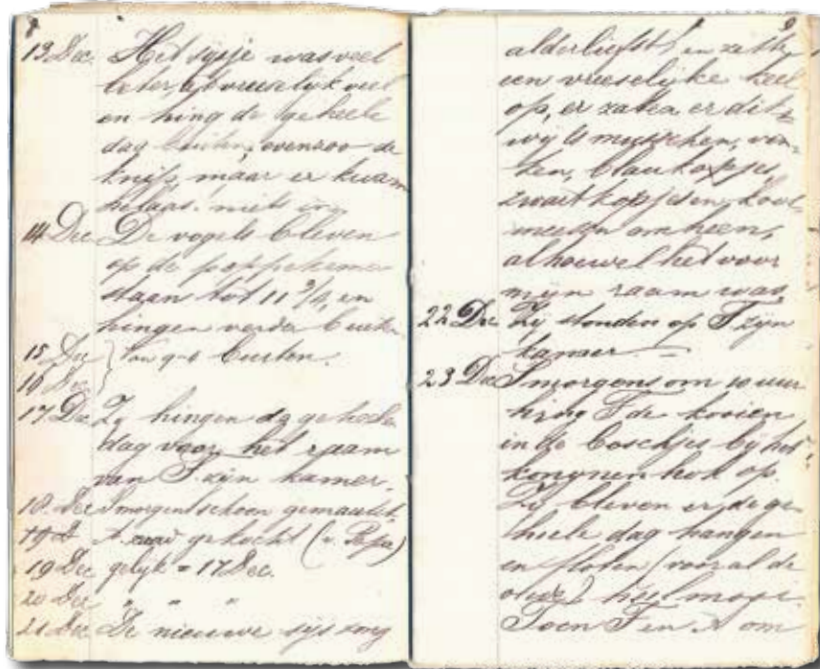 8
13 Dec. Het sijsje was veel
beter, at vreeselijk veel
en hing de geheele
dag buiten, evenzoo de
knijp, maar er kwam
helaas! niets in.
14 Dec De vogels bleven
op de poppekamer
staan tot 11 3/4, en
hingen verder buiten
15 Dec } Van 9-6 buiten.
16 Dec }
17 Dec Zy hingen de geheelen
dag voor het raam
van F. zijn kamer.
18. Dec Smorgens schoon gemaakt.
gekocht (v. Papa)
19 Dec gelijk = 17 Dec.
20 Dec " " "
21 Dec De nieuwe sijs zong
9
alderliefst en zette
een vreeselijke keel
op, er zaten er dik-
wijls musschen, vin-
ken, blaukopjes,
zwartkopjes en kool-
meezen omheen,
alhoewel het voor
mijn raam was.
22 Dec Zij stonden op F zijn
kamer. —
23 Dec Smorgens om 10 uur
hing F de kooien
in de boschjes bij het
konynen hok op.
Zij bleven er de ge-
heele dag hangen
en floten (vooral de
) heel mooi.
Toen F en A om